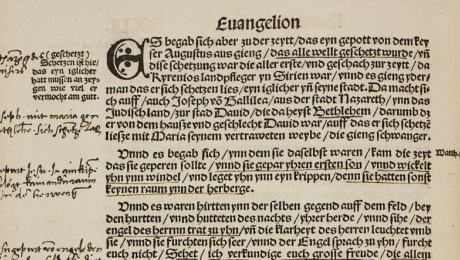 Euangelion
ES begab sich aber zu der zeytt/ das eyn gepott von dem key
ser Augustus aus gieng/ das alle wellt geschetzt wurde/ vñ
dise schetzung war die aller erste/ vnd geschach zur zeytt/ da
Kyrenios landpfleger yn Sirien war/ vnnd es gieng yder-
man das er sich schetzen lies/ eyn iglicher yñ seyne stadt. Da macht si-
ch auff/ auch Joseph võ Gallilea/ aus der stadt Nazareth/ ynn das
Judisch land/ zur stad Dauid/ die da heyst Bethlehem/ darumb dz
er von dem hausze vnd geschlecht Dauid war/ auff das er sich schetzē
liesze mit Maria seynem vertraweten weybe/ die gieng schwanger.
(geschetzt)
Schetzen ist hie/
das eyn iglicher
hatt mussen an zey-
gen wie viel er
vermocht am gutt.
Vnnd es begab sich/ ynn dem sie daselbst waren/ kam die zeyt
das sie geperen sollte/ vnnd sie gepar yhren ersten son/ vnnd wickelt
yhn ynn windel/ vnd leget yhn ynn eyn krippen/ denn sie hatten sonst
keynen raum ynn der herberge.
Vnnd es waren hirtten ynn der selben gegend auff dem feld/ bey
den hurtten/ vnnd hutteten des nachts/ yhrer herde/ vnnd sihe/ der
engel des herrn trat zu yhn/ vñ die klarheyt des herren leuchtet vmb
sie/ vnnd sie furchten sich seer/ vnnd der Engel sprach zu yhn/ furcht
euch nicht/ Sehet/ ich verkundige euch grosse freude/ die allem